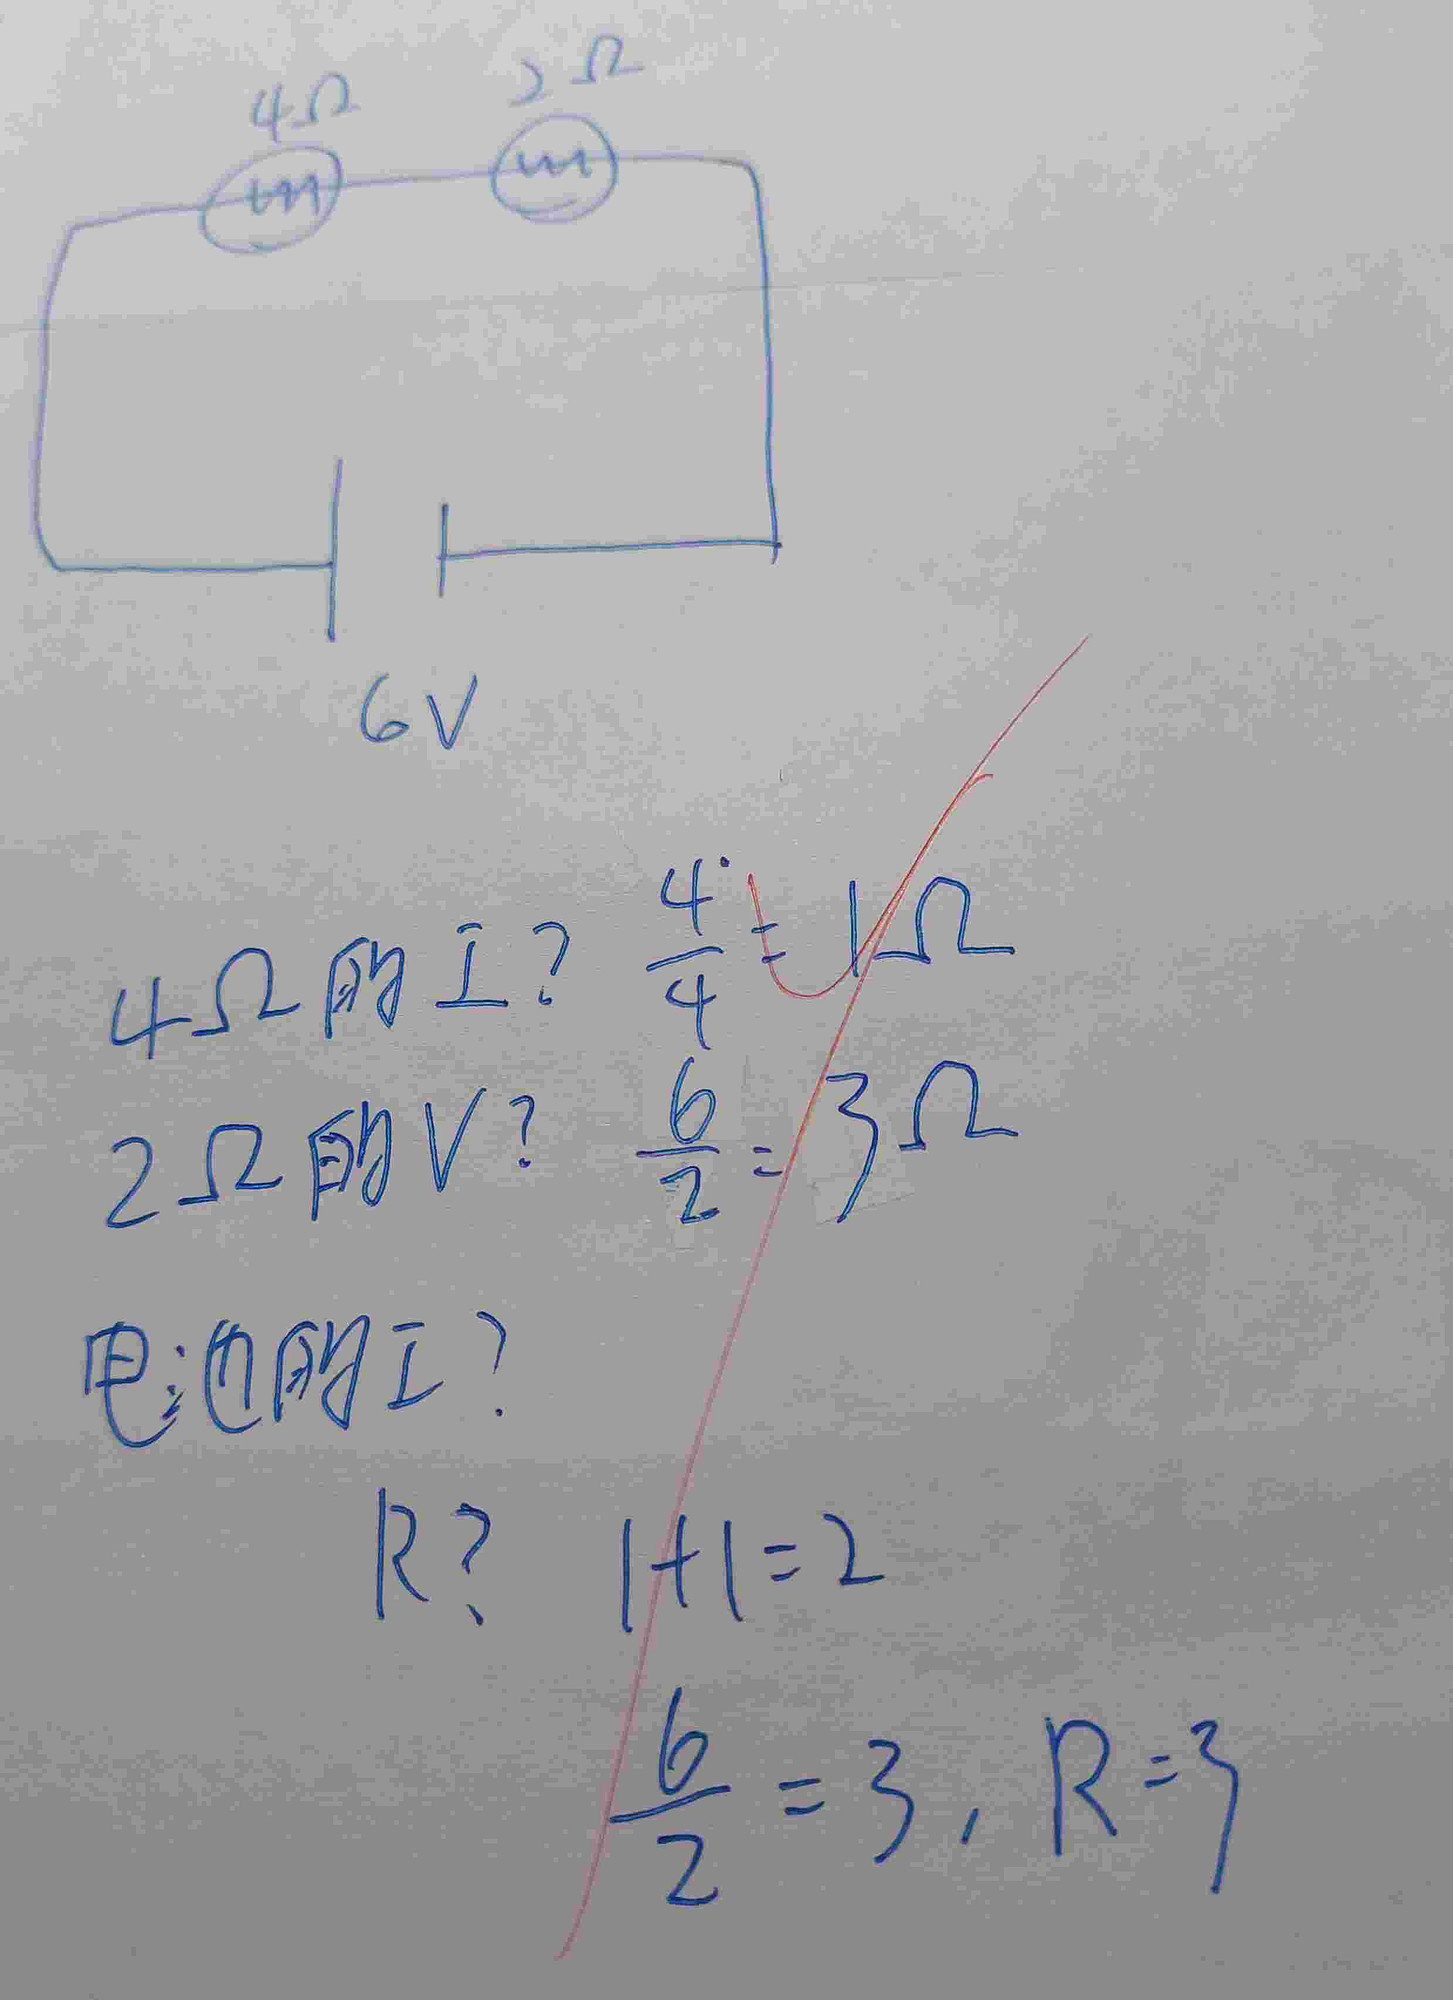 4Ω 2Ω
6V
4Ω的I? 4/4=1Ω
2Ω的V? 6/2=3Ω
电池的I?
R? 1+1=2
6/2=3, R=3